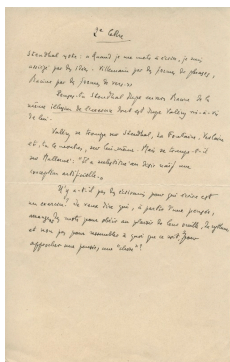 2e Cahier
Stendhal note : « Quand je me mets à écrire, je suis
assiégé par des idées. Villemain par des formes de phrases,
Racine par des formes de vers. »
Stendhal dupe envers Racine de la
même illusion de l'exercice dont est dupe Valéry vis-à-vis
de lui.
Valéry se trompe sur Stendhal, La Fontaine, Verlaine
sur lui-même. Mais se trompe-t-il
sur Mallarmé : "Il a substitué au désir naïf une
conception artificielle.
N'y a-t-il pas des écrivains pour qui écrire est
un exercice ? Je veux dire qui, à partir d'une pensée,
arrangent des mots pour obéir au plaisir de leur oreille, du rythme
et non pas pour ressembler à quoi que ce soit, pour
approcher une pensée, une "chose" !